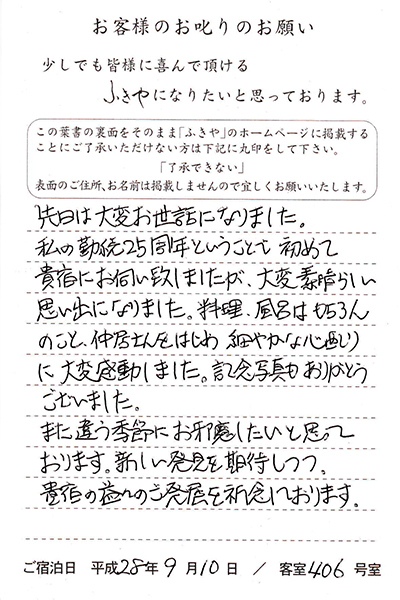 お客様のお叱りのお願い
少しでも皆様に喜んで頂ける
ふきやになりたいと思っております。
この葉書の裏面をそのまま「ふきや」のホームページに掲載する
ことにご了承いただけない方は下記に丸印をして下さい。
「了承できない」
表面のご住所、お名前は掲載しませんので宜しくお願いいたします。
先日は大変お世話になりました。
私の勤続25周年ということで初めて
貴宿にお伺い致しましたが、大変素晴らしい
思い出になりました。料理、風呂はもちろん
のこと、仲居さんをはじめ細やかな心配り
に大変感動しました。記念写真もありがとう
ございました。
また違う季節にお邪魔したいと思って
おります。新しい発見を期待しつつ、
貴宿の益々のご発展を祈念しております。
ご宿泊日 平成28年9月10日 / 客室406号室